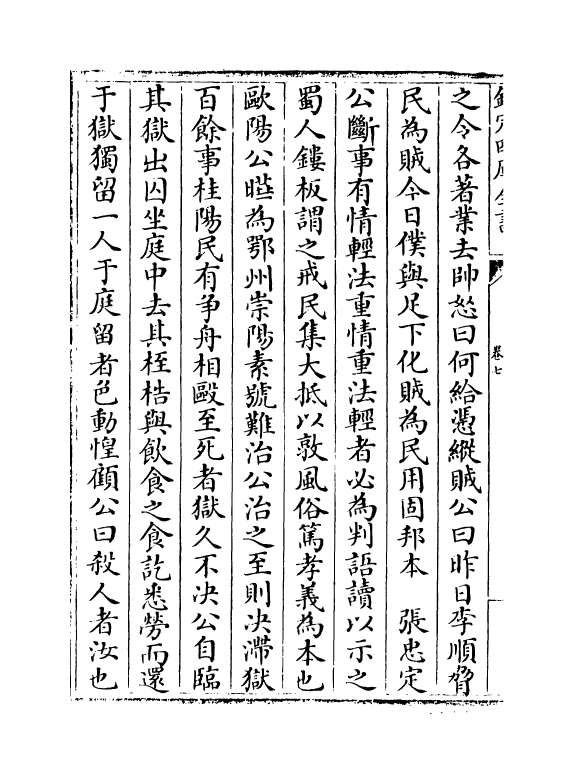 欽定四庫全書
卷七
之令各著業去帥怒曰何給憑縱賊公曰昨日李順脅
民為賊今日僕與足下化賊為民用固邦本　張忠定
公斷事有情輕法重情重法輕者必為判語讀以示之
蜀人鏤板謂之戒民集大抵以敦風俗篤孝義為本也
歐陽公曄為鄂州崇陽素號難治公治之至則决滯獄
百餘事桂陽民有争舟相毆至死者獄久不决公自臨
其獄出囚坐庭中去其桎梏與飲食之食訖悉勞而還
于獄獨留一人于庭留者色動惶顧公曰殺人者汝也